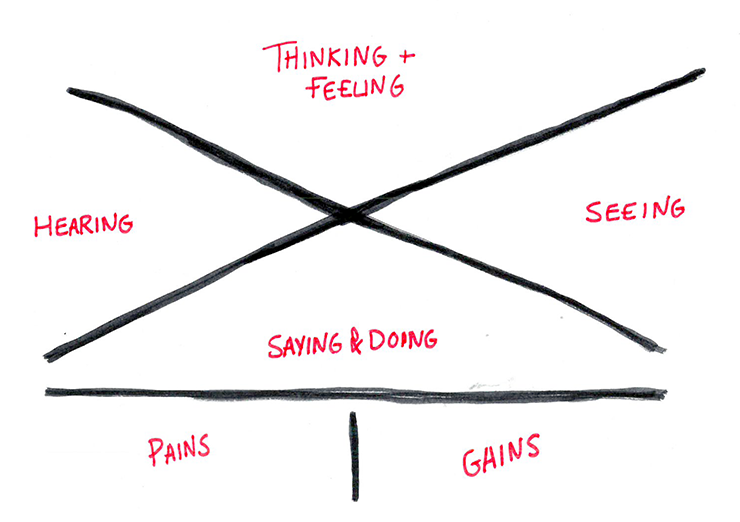 THINKING +
FEELING
HEARING
SEEING
SAYING & DOING
PAINS
GAINS